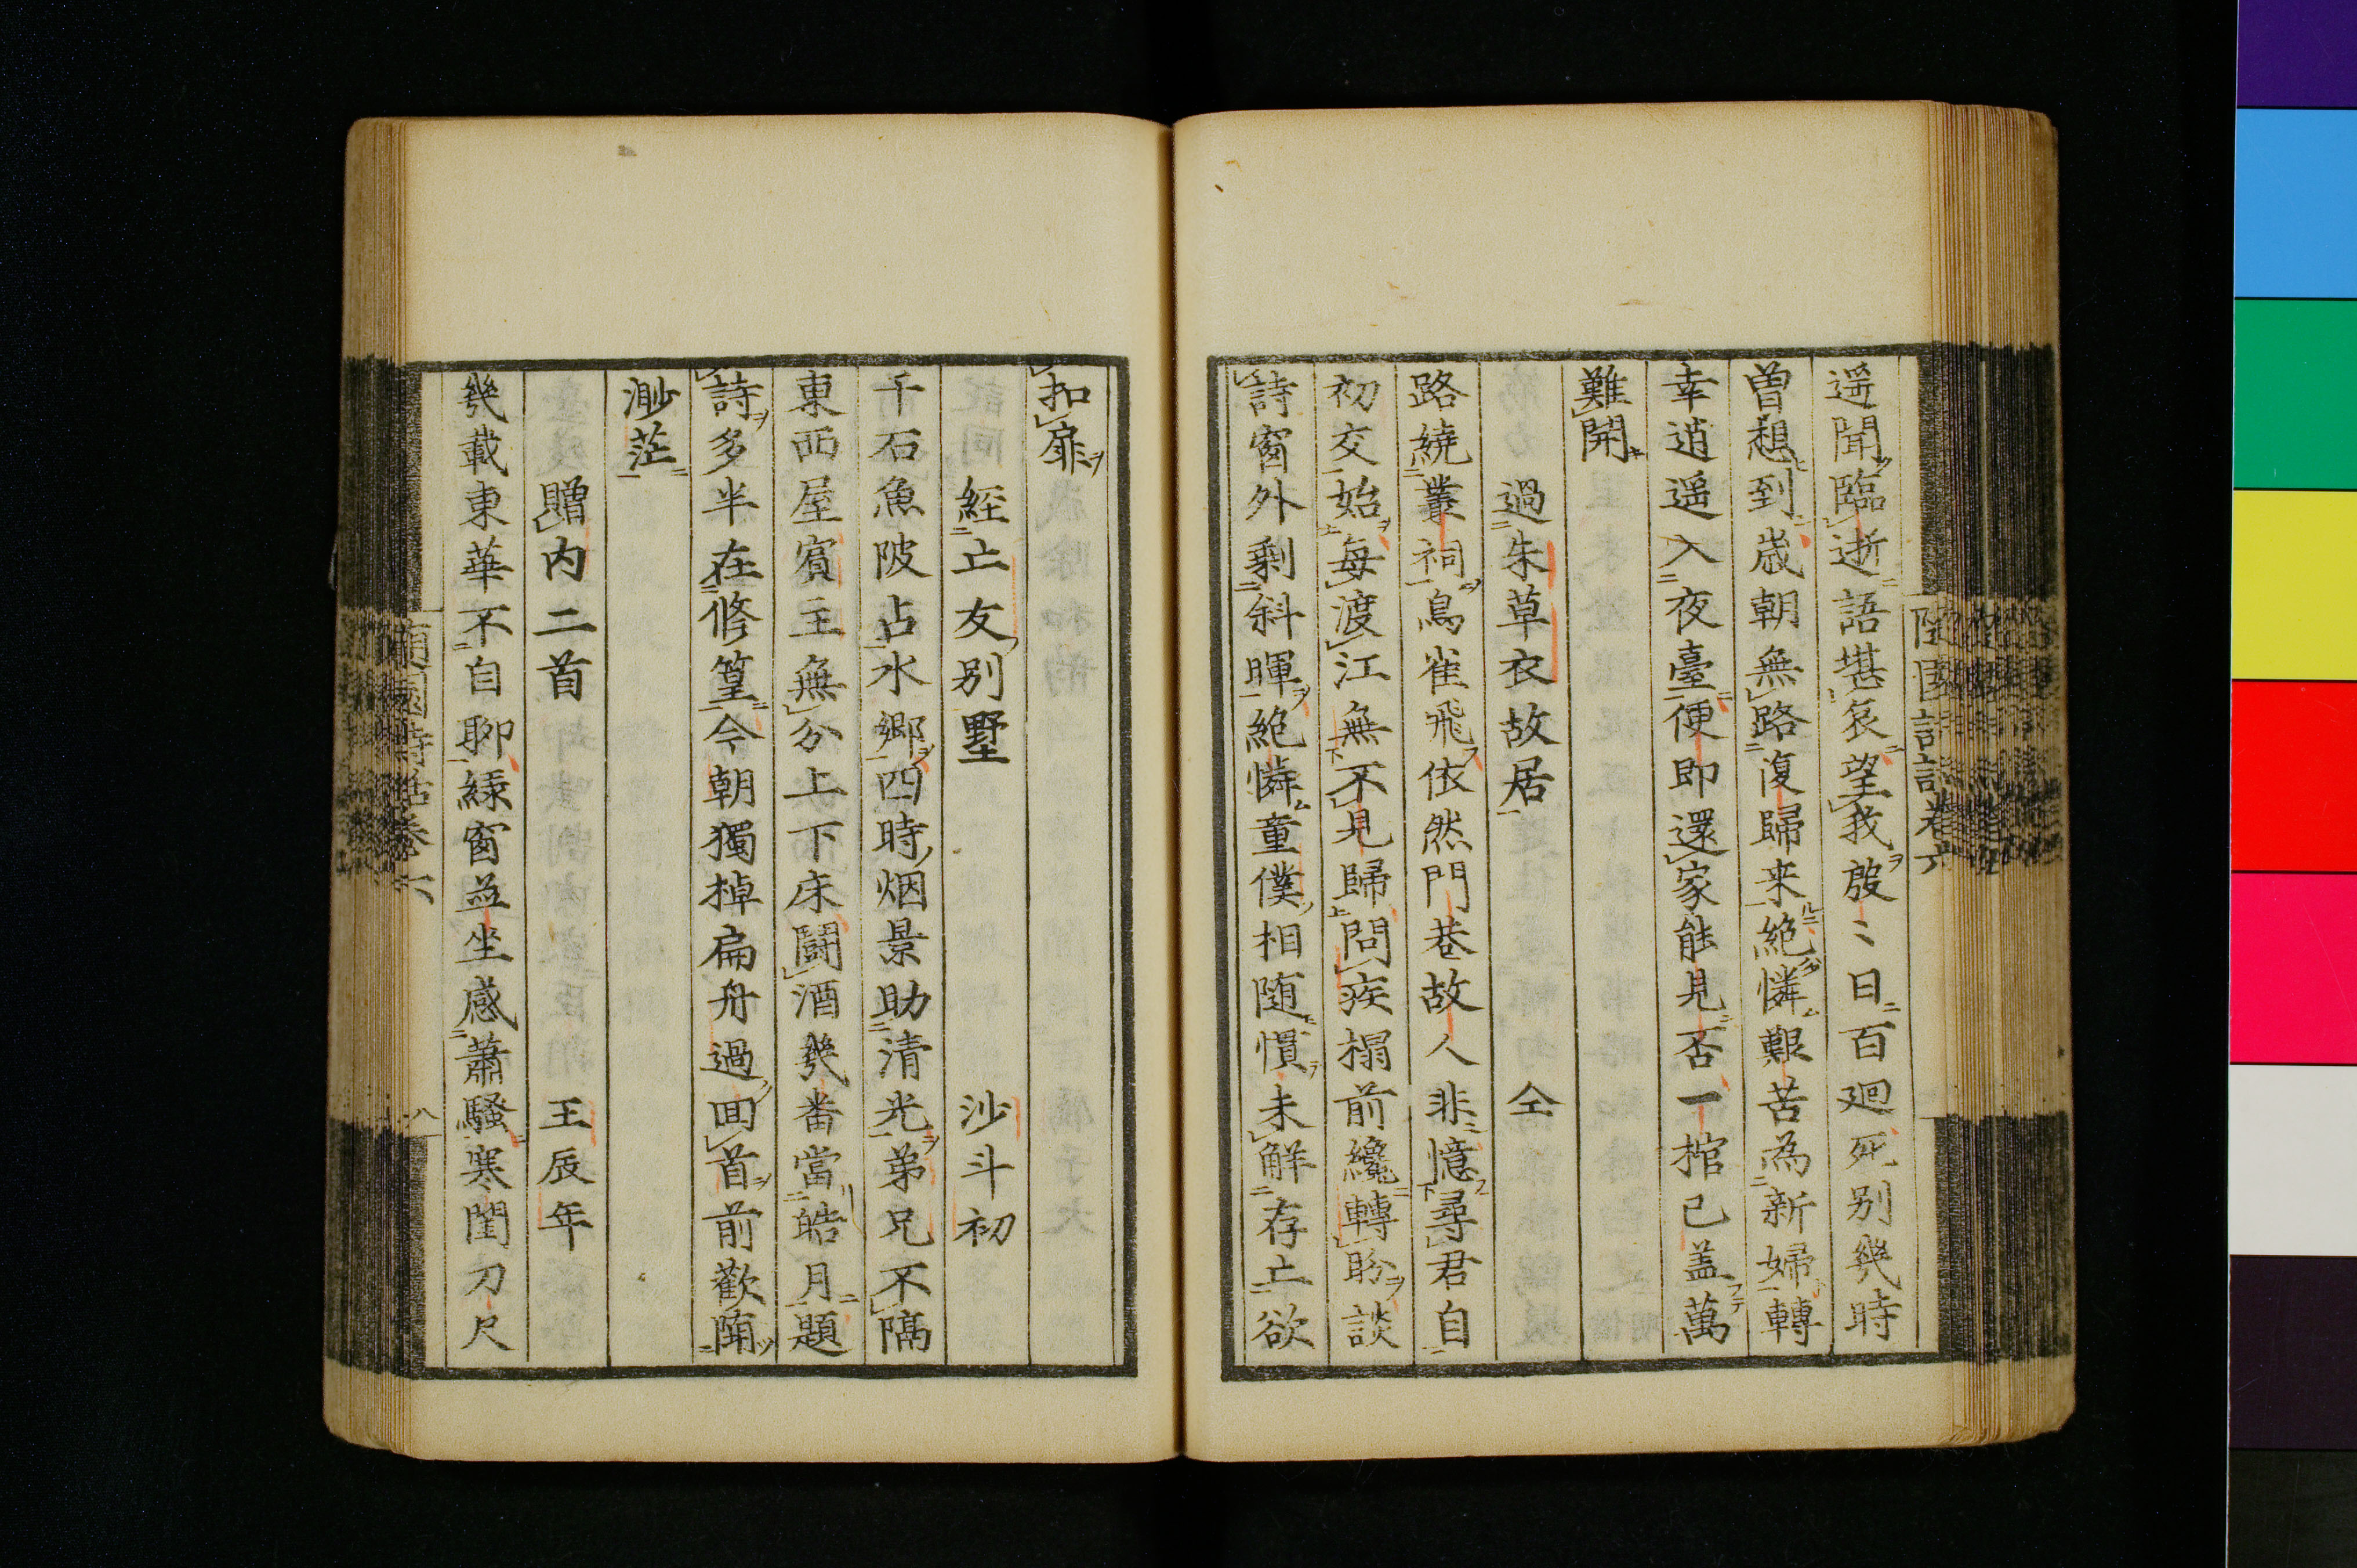 遥聞臨逝語堪哀望我殷〻日百廻死别幾時
曽想到歳朝無路復歸来絶憐艱苦為新婦轉
幸逍遥入夜臺便即還家能見否一棺已盖萬
難開
過朱草衣故居　仝
路繞叢祠鳥雀飛依然門巷故人非憶尋君自
初交始每渡江無不見歸問疾榻前纔轉盼談
詩窗外剩斜暉絶憐童僕相随慣未解存亡欲
扣扉
經亡友别墅　沙斗初
千石魚陂占水郷四時烟景助清光弟兄不隔
東西屋賓主無分上下床鬪酒幾番當皓月題
詩多半在修篁今朝獨掉扁舟過回首前歡隔
渺茫
贈内二首　王辰年
幾載東華不自聊緑窗並坐感蕭騷寒閨刀尺
随園詩話巻六
随園詩話巻六
八